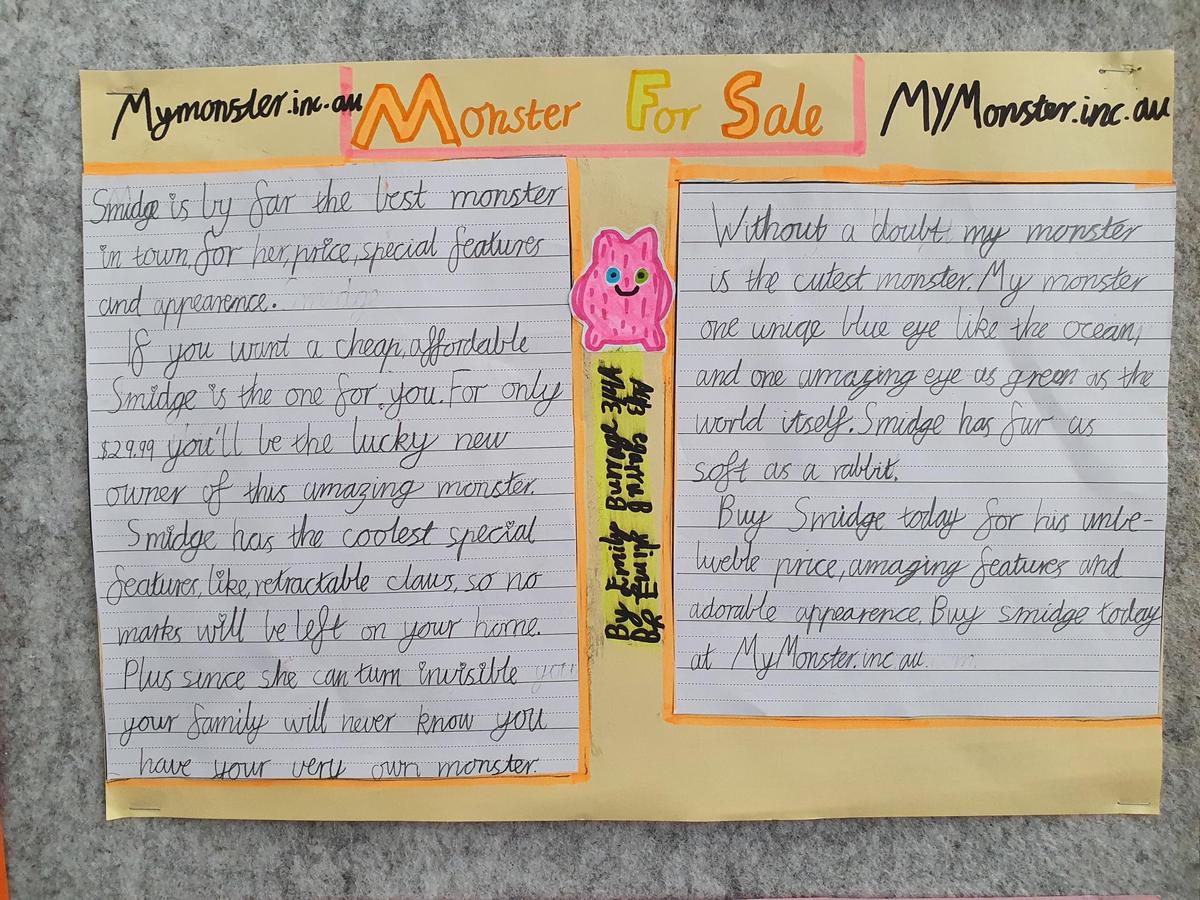 Mymonster.inc.au
Monster For Sale
MYMonster.inc.au
Smidge is by far the best monster
in town, for her, price, special features
and appearence.
If you want a cheap, affordable
Smidge is the one for you. For only
$29.99 you'll be the lucky new
owner of this amazing monster.
Smidge has the coolest special
features, like, retractable claws, so no
marks will be left on your home.
Plus since she can turn invisible
your family will never know you
have your very own monster.
By Emily Burrage
By Emily
Without a doubt my monster
is the cutest monster. My monster
one uniqe blue eye like the ocean,
and one amazing eye as green as the
world itself. Smidge has fur as
soft as a rabbit.
Buy Smidge today for his unbe-
liveble price, amazing features and
adorable appearence. Buy smidge today
at MyMonster.inc au.